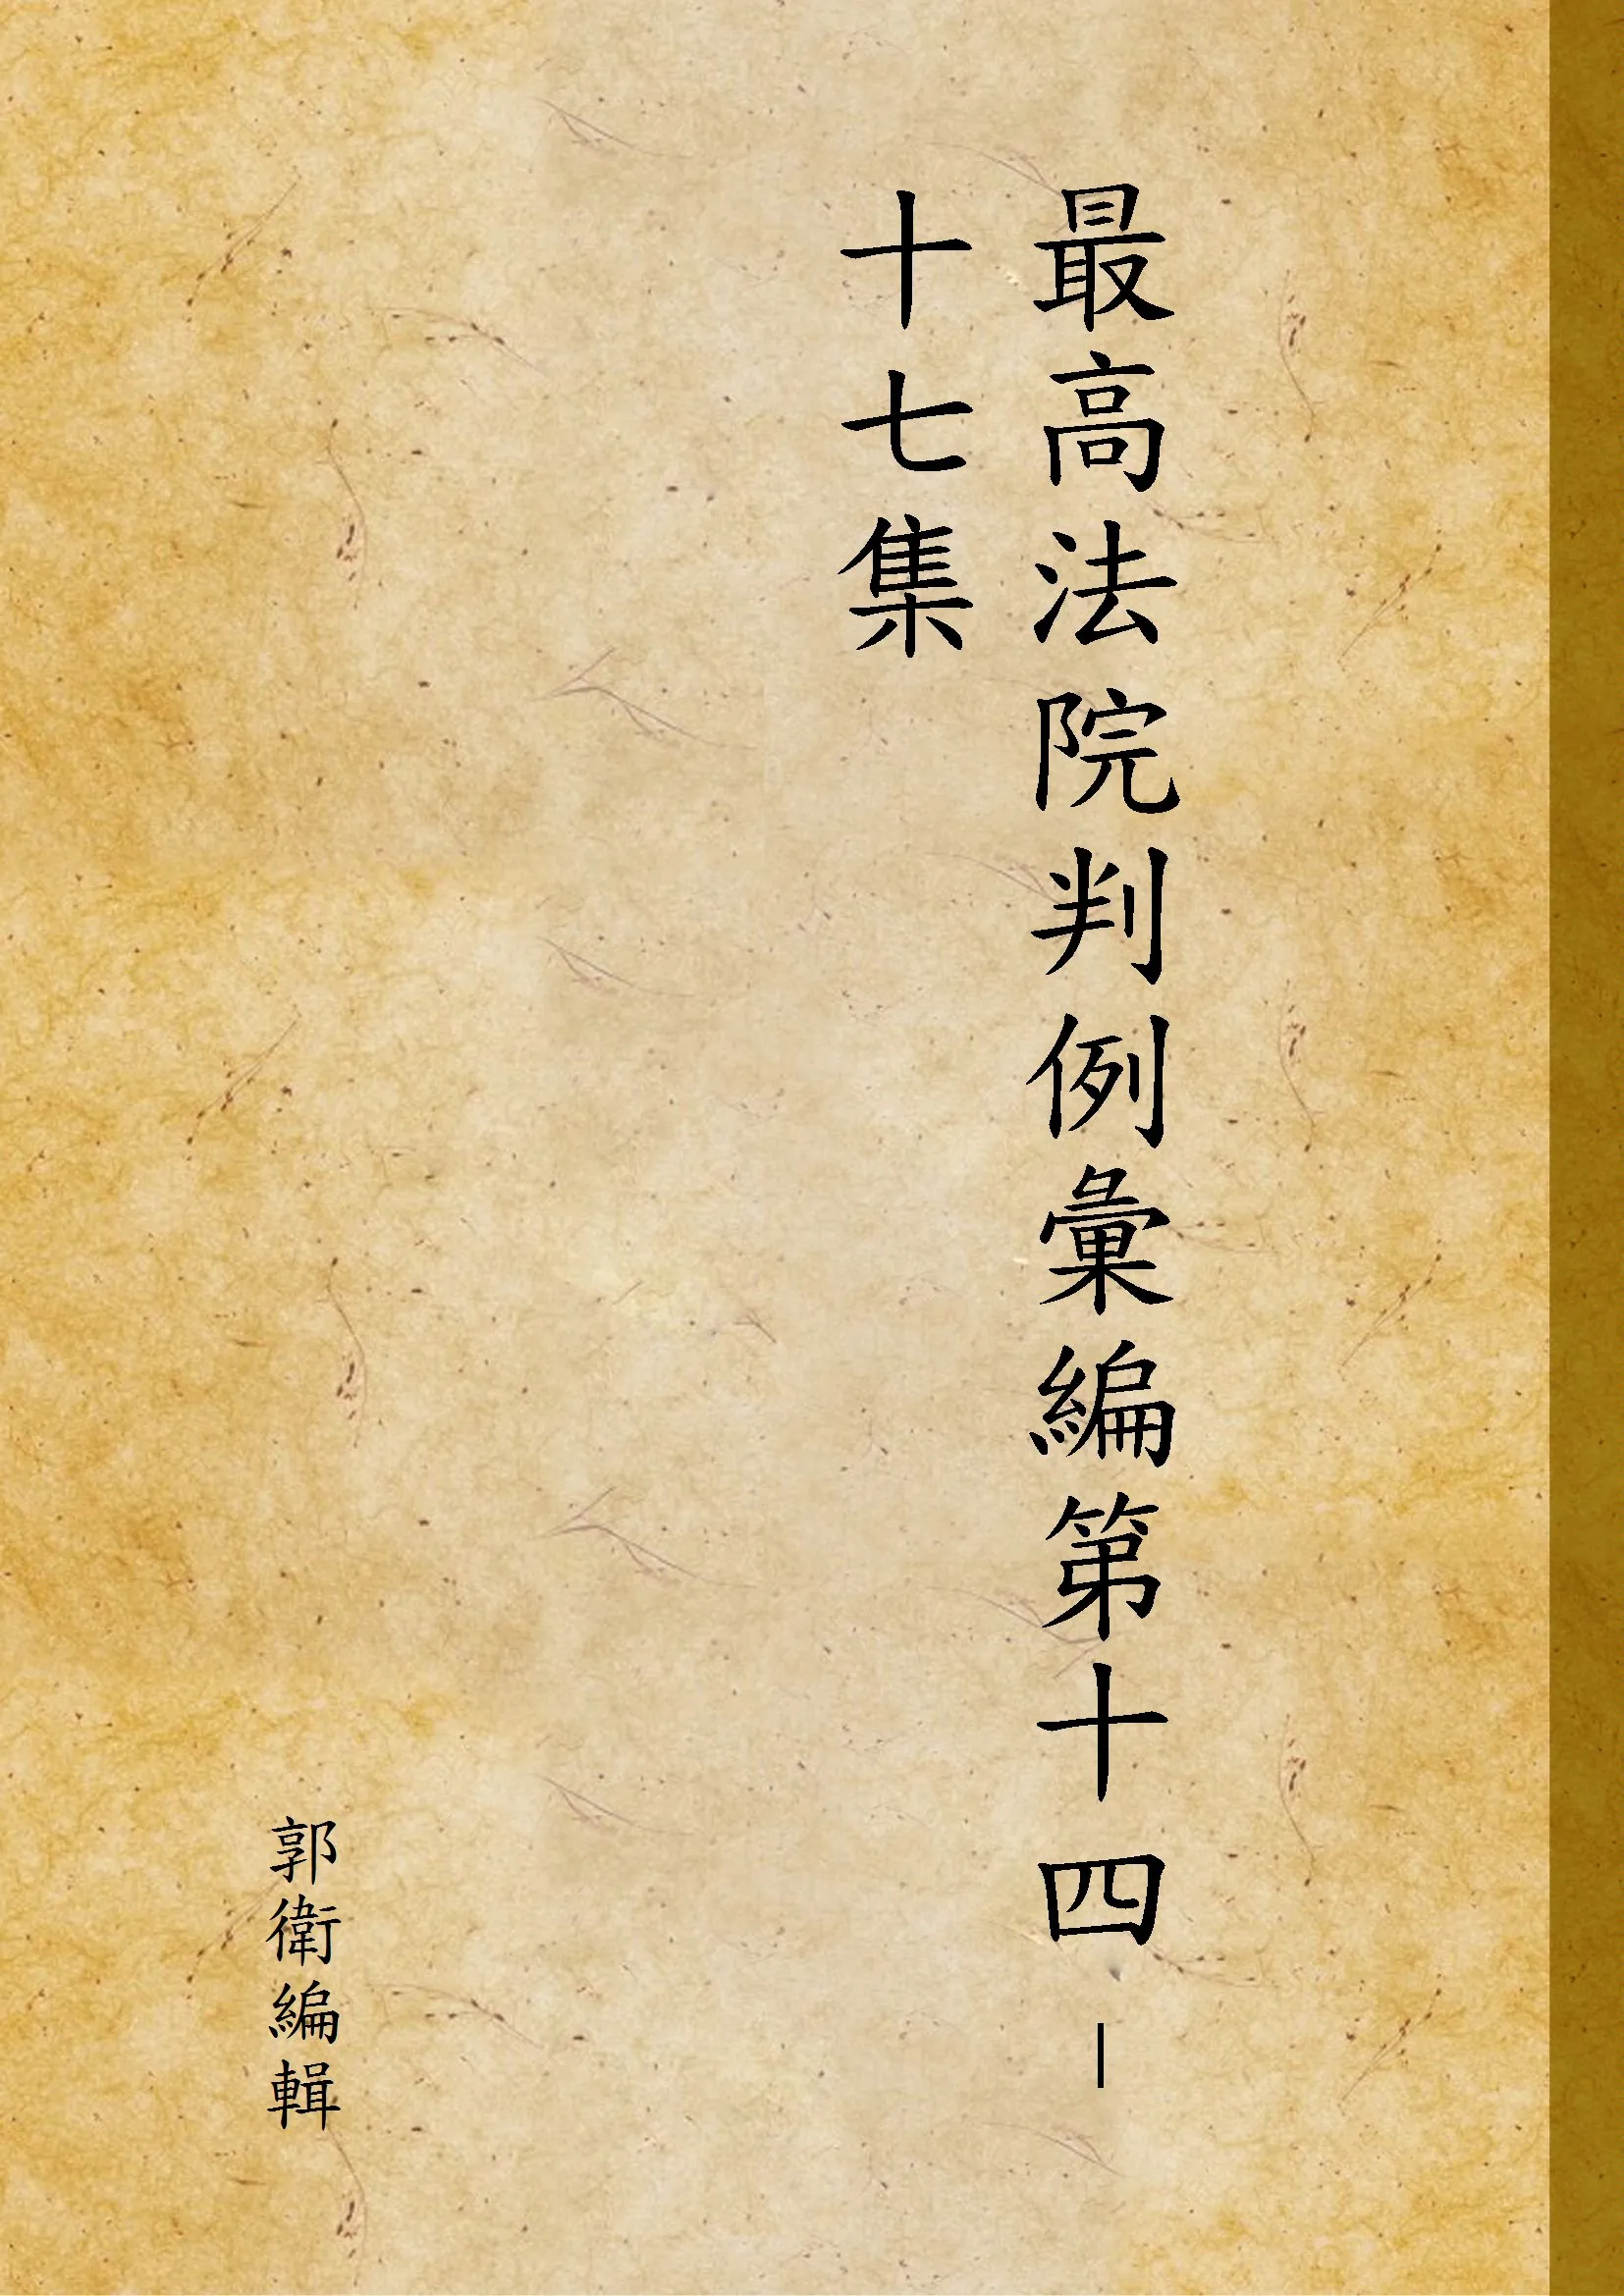 最高法院判例彙編第十四－
十七集
郭衛編輯